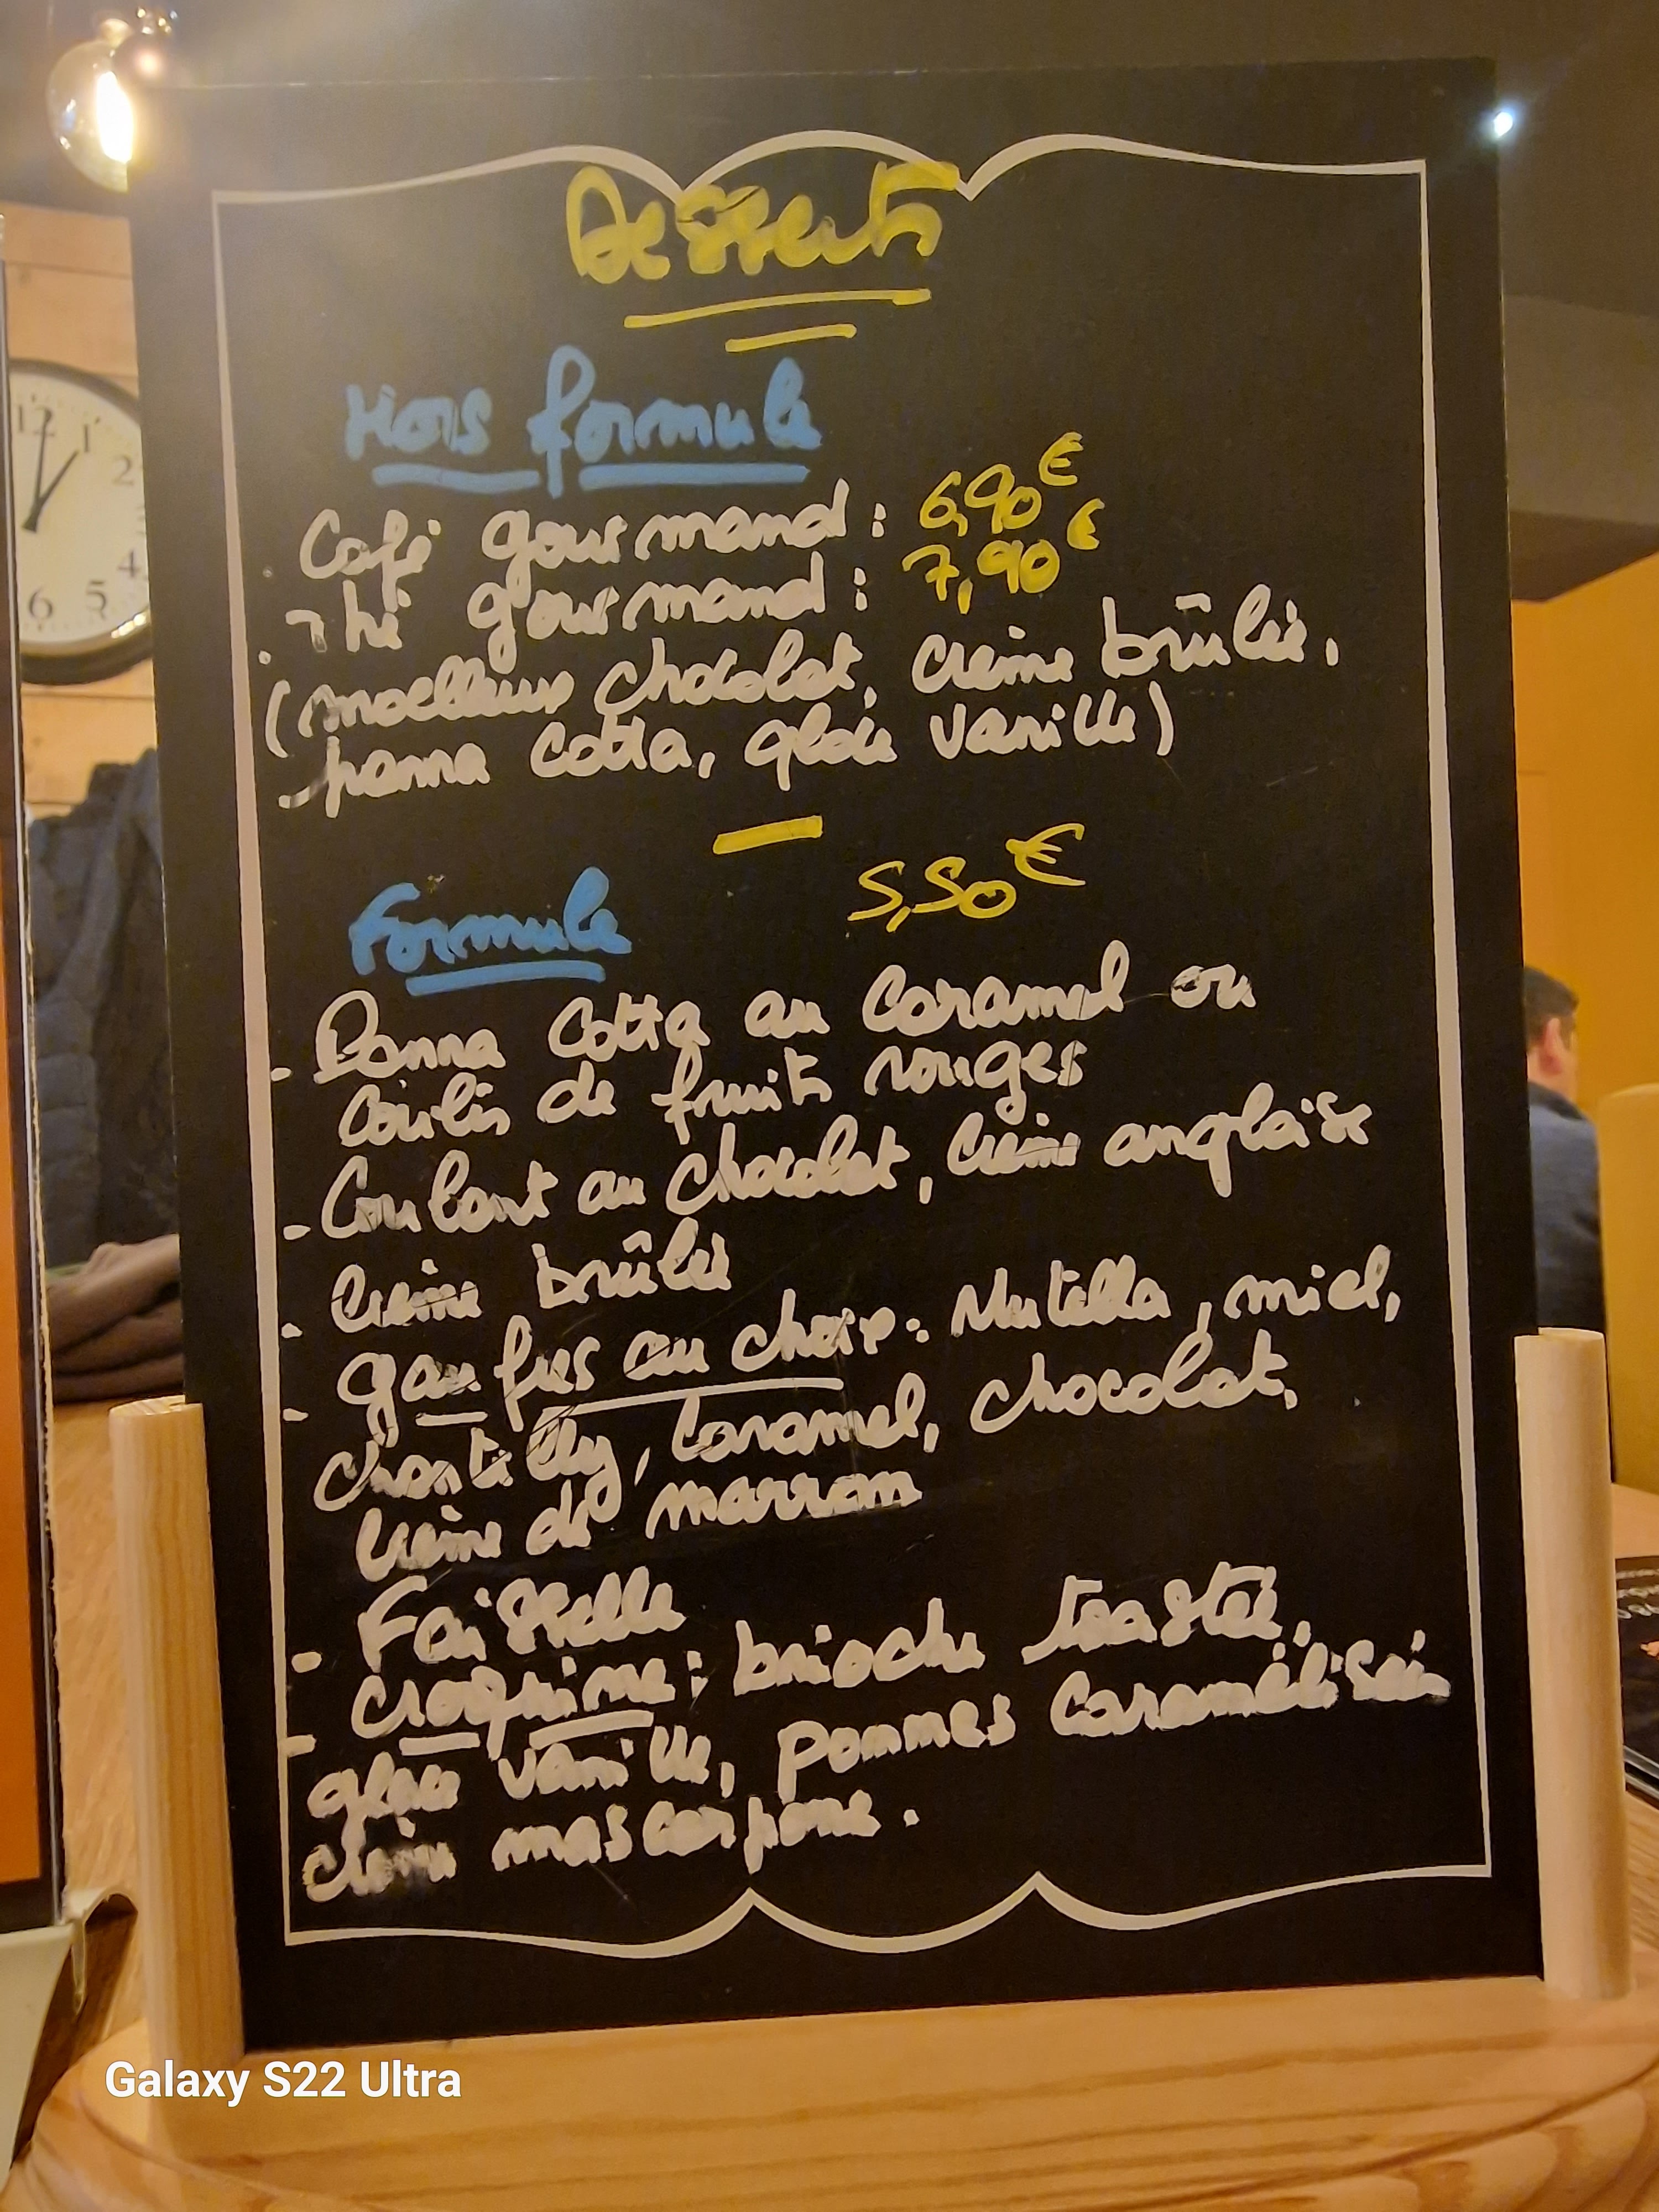 Desserts
Hors formule
. Café gourmand : 6,90€
. Thé gourmand : 7,90€
(moelleux chocolat, crème brûlée,
panna cotta, glace vanille)
Formule 5,50€
- Panna Cotta au Caramel ou
Coulis de fruits rouges
- Coulant au chocolat, crème anglaise
- Crème brûlée
- gaufres au choix : Nutella, miel,
chantilly, Caramel, chocolat,
Crème de marron
- Faisselle
- croquine : brioche toastée,
glace vanille, pommes caramélisées
crème mascarpone.
12
1
2
4
5
6
Galaxy S22 Ultra